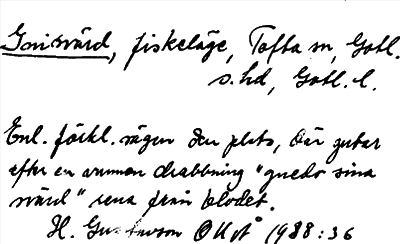 Gnisvärd, fiskeläge, Tofta sn, Gotl.
s. hd, Gotl. l.
Enl. förkl. sägen den plats, där gutar
efter en annan drabbning "gnedo sina
svärd" rena från blodet.
H. Gustavson 1938:36